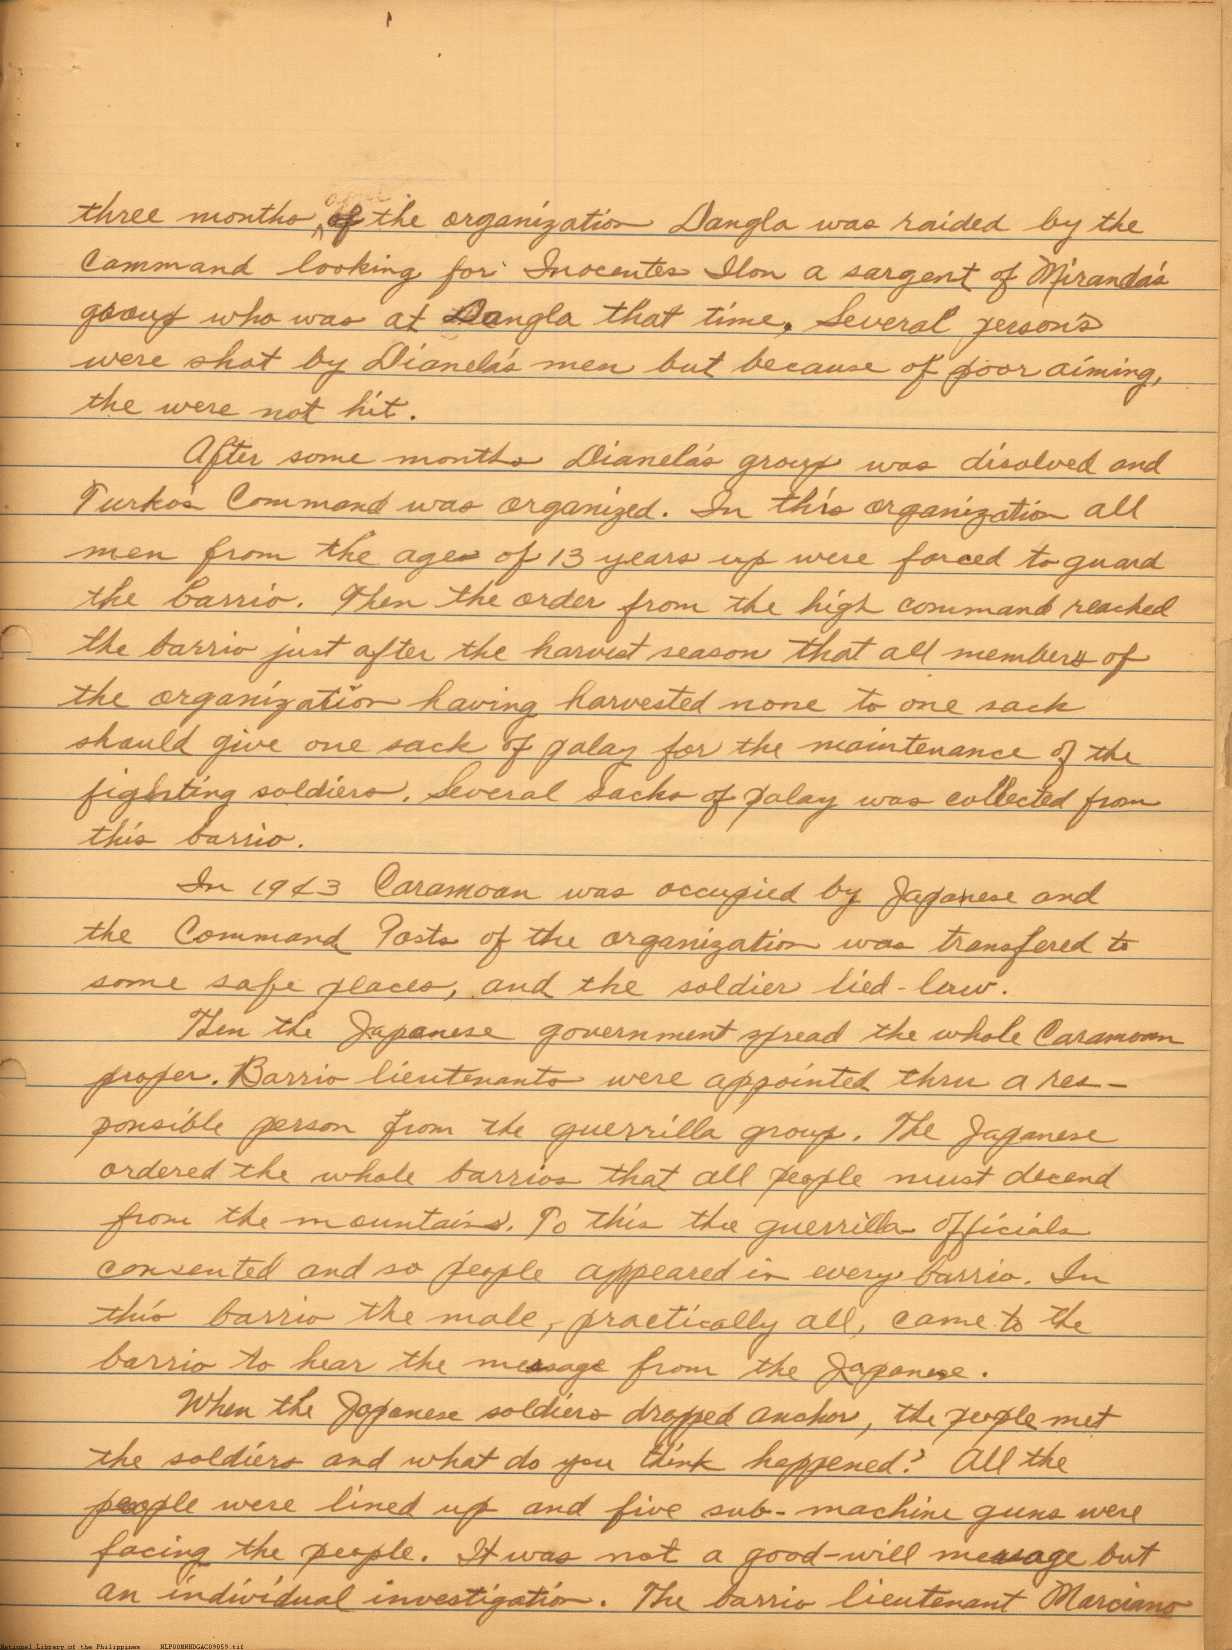 three months of the organization Dangla was raided by the
Command looking for Inocentes Ilon a sargent of Miranda's
group who was at Dangla that time. Several person's
were shot by Dianela's men but because of poor aiming,
the were not hit.
After some months Dianela's group was disolved and
Turko's Command was organized. In this organization all
men from the ages of 13 years up were forced to guard
the barrio. Then the order from the high command reached
the barrio just after the harvest season that all members of
the organization having harvested none to one sack
should give one sack of palay for the maintenance of the
fighting soldiers. Several sacks of palay was collected from
this barrio.
In 1943 Caramoan was occupied by Japanese and
the Command Posts of the organization was transfered to
some safe places, and the soldier lied-low.
Then the Japanese government spread the whole Caramoan
proper. Barrio lieutenants were appointed thru a res-
ponsible person from the guerrilla group. The Japanese
ordered the whole barrios that all people must decend
from the mountains. To this the guerrilla officials
consented and so people appeared in every barrio. In
this barrio the male, practically all, came to the
barrio to hear the message from the Japanese.
When the Japanese soldiers dropped anchor, the people met
the soldiers and what do you think happened? All the
people were lined up and five sub-machine guns were
facing the people. It was not a good-will message but
an individual investigation. The barrio lieutenant Marciano
National Library of the Philippines NLPOOMNHDGAC09059.tif